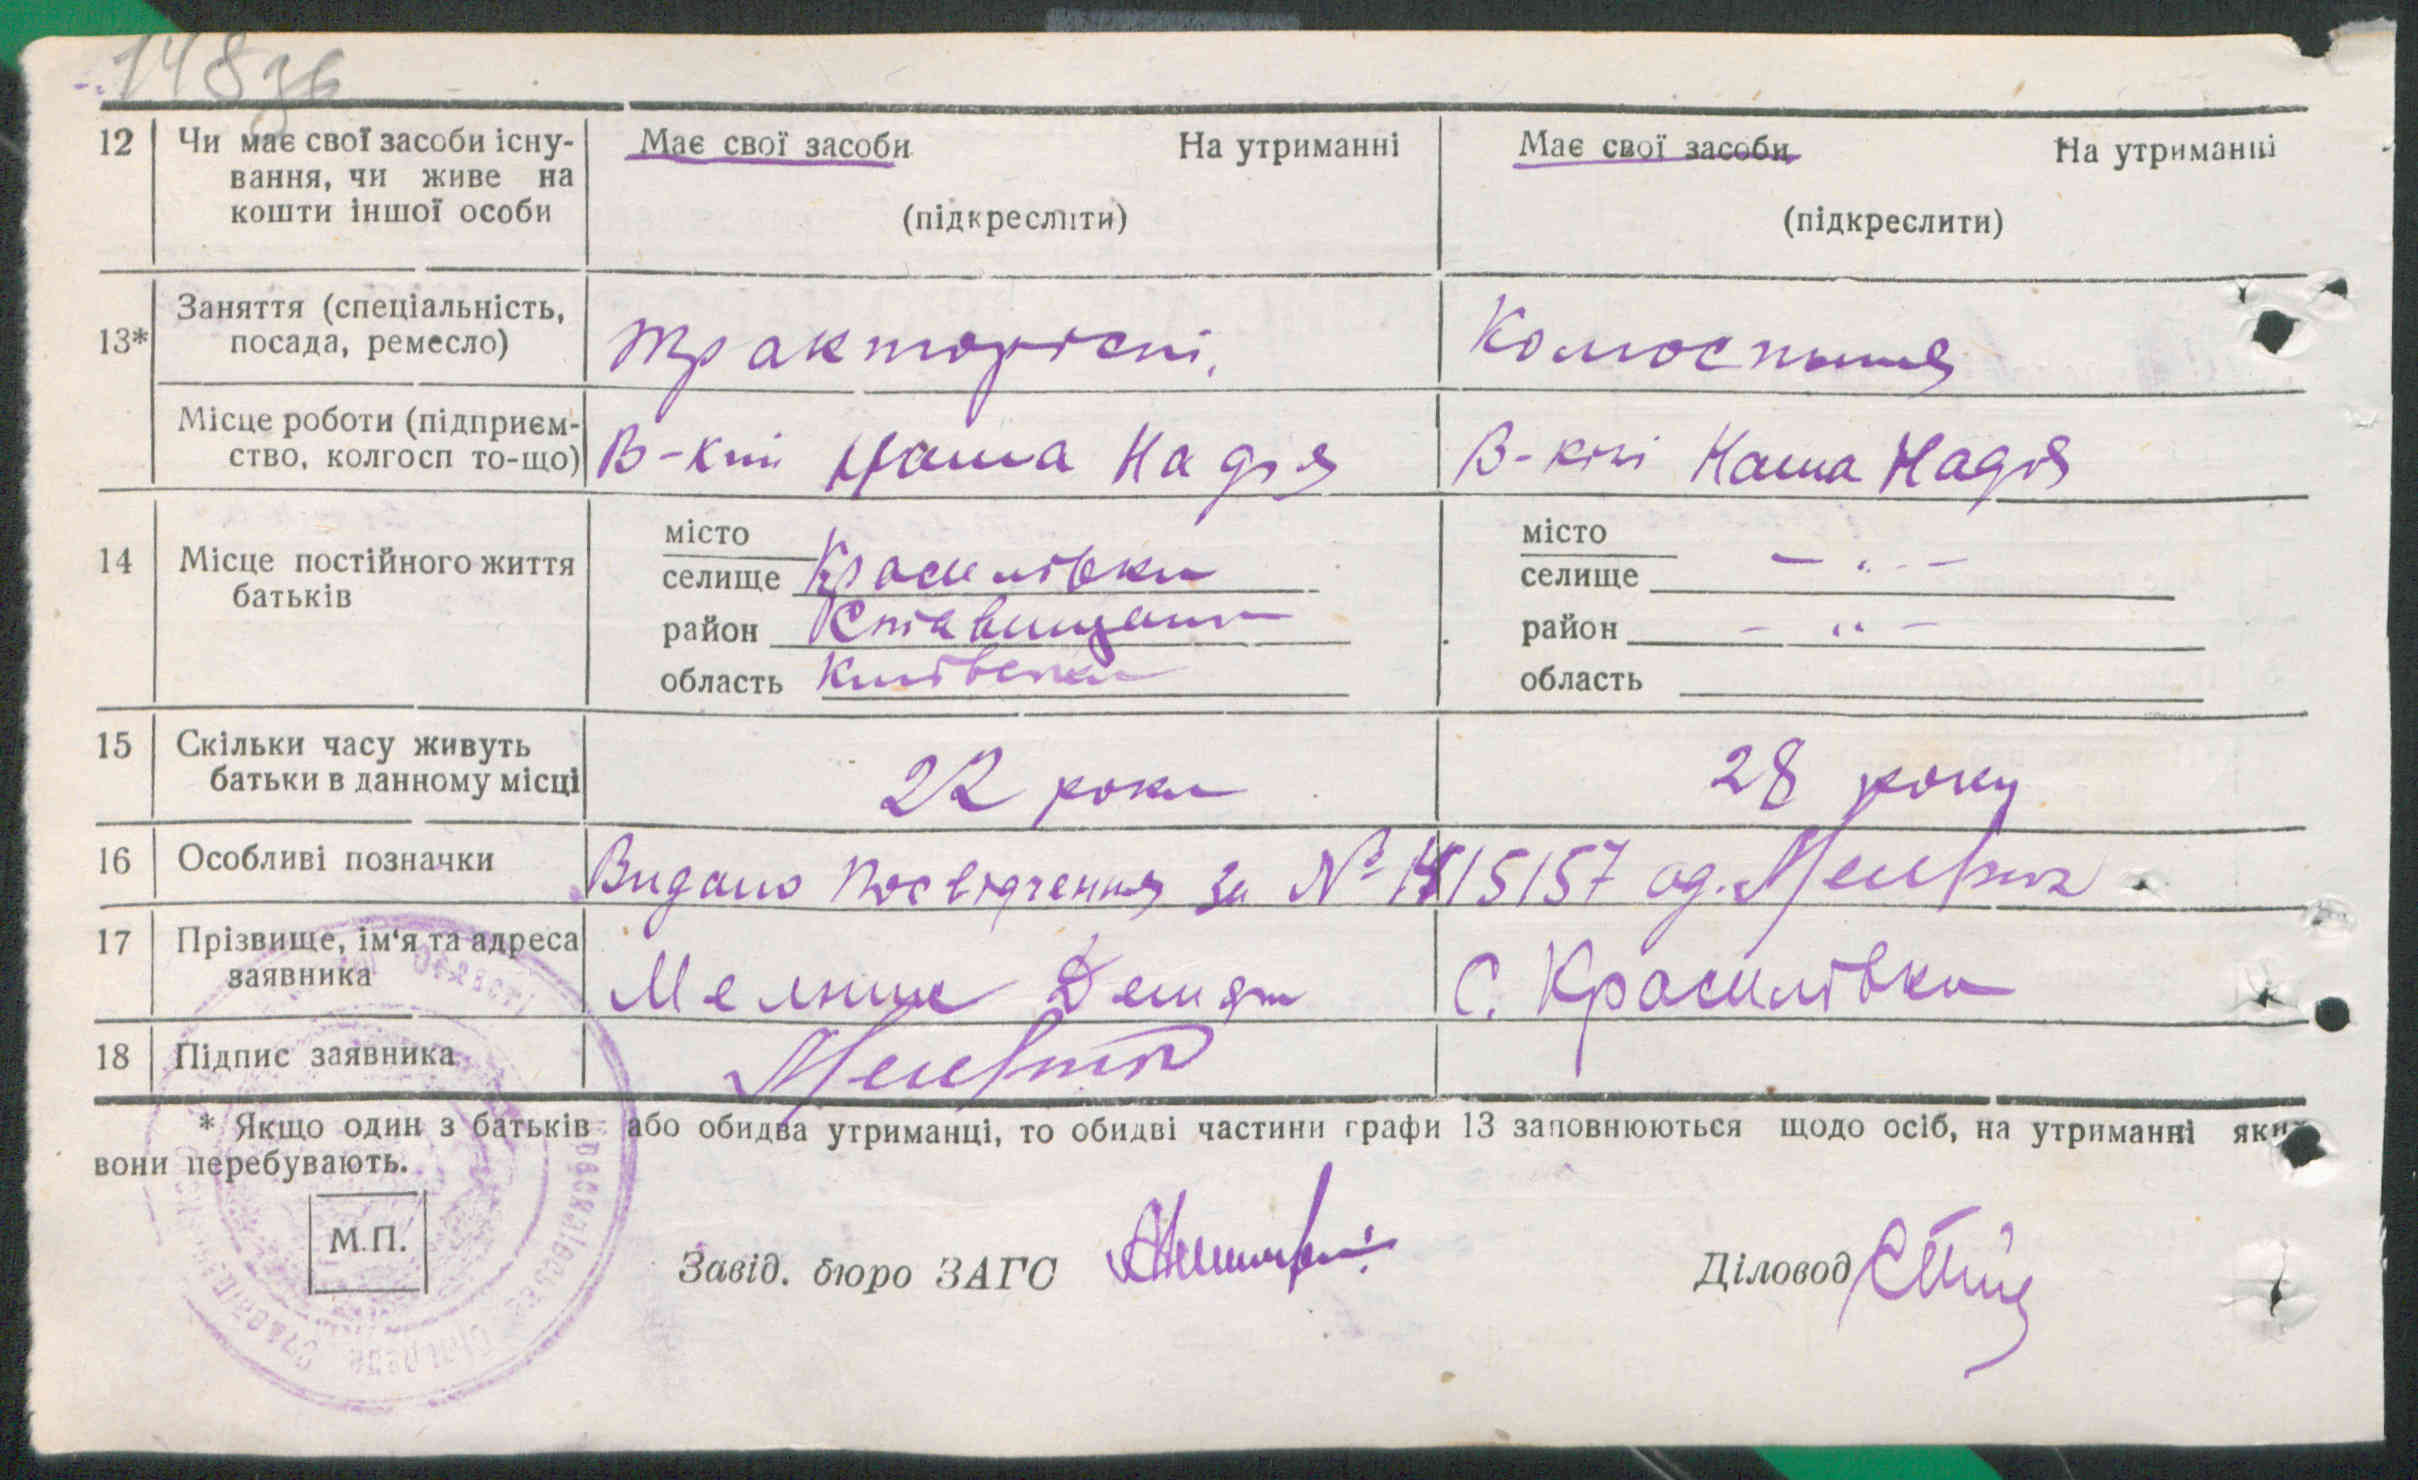 148зв
12 Чи має свої засоби існу- Має свої засоби На утриманні Має свої засоби На утриманні
вання, чи живе на
кошти іншої особи (підкреслити) (підкреслити)
13* Заняття (спеціальність,
посада, ремесло) Тракторісті. Колгоспниця
Місце роботи (підприєм-
ство, колгосп то-що) Наша Надія Наша Надія
14 Місце постійного життя
батьків
місто
селище Красилівка
район Ставищан
область Київська
місто
селище — „ —
район — „ —
область
15 Скільки часу живуть
батьки в данному місці 22 роки 28 року
16 Особливі позначки Видано посвідчення за № 1415157 од. Мельник
17 Прізвище, ім'я та адреса
заявника Мелник Демян С. Красилівка
18 Підпис заявника Мельник
* Якщо один з батьків або обидва утриманці, то обидві частини графи 13 заповнюються щодо осіб, на утриманні яких
вони перебувають.
М.П.
Завід. бюро ЗАГС Діловод